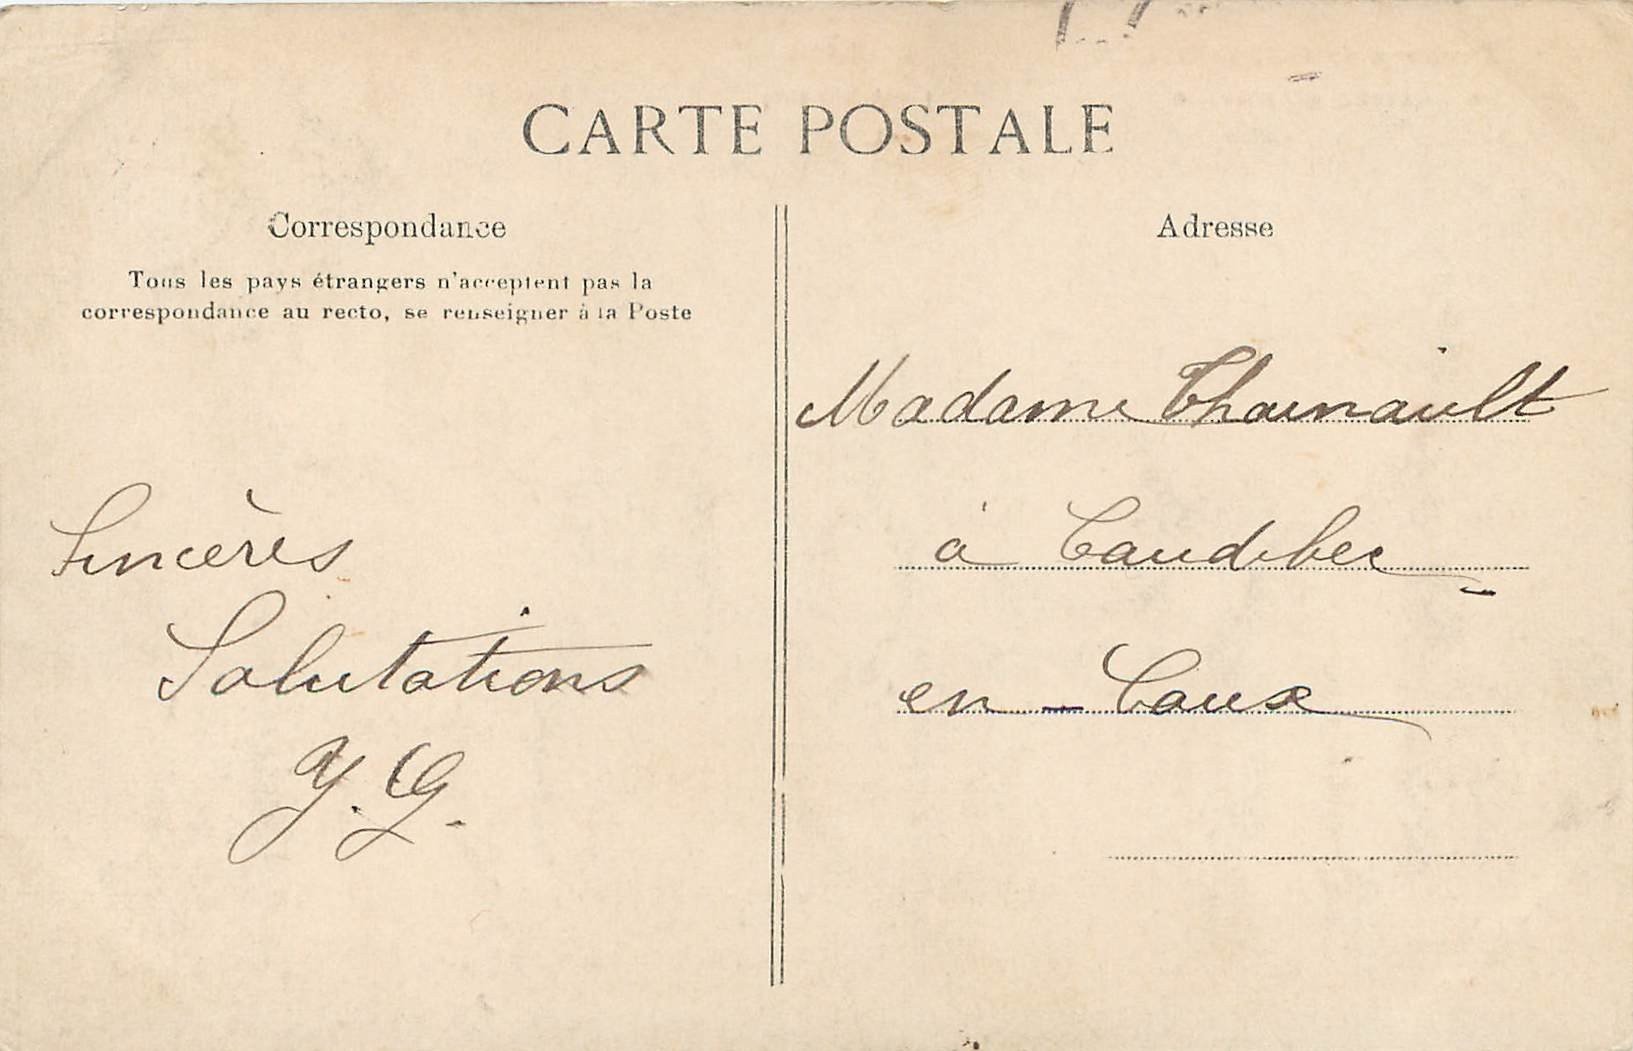 CARTE POSTALE
Correspondance
Tous les pays étrangers n'acceptent pas la
correspondance au recto, se renseigner à la Poste
Sincères
Salutations
Y. G.
Adresse
Madame Thainault
à Caudebec-
en-Caux